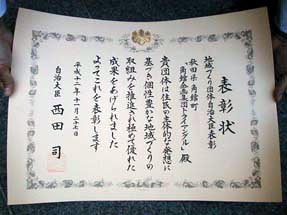 表彰状
地域づくり団体自治大臣表彰
秋田県 角館町
「角館企画集団トライアングル」殿
貴団体は住民の主体的な発想に
基づき個性豊かな地域づくりの
取組みを推進され極めて優れた
成果をあげられました
よってこれを表彰します
平成十二年十一月二十七日
自治大臣 西田 司